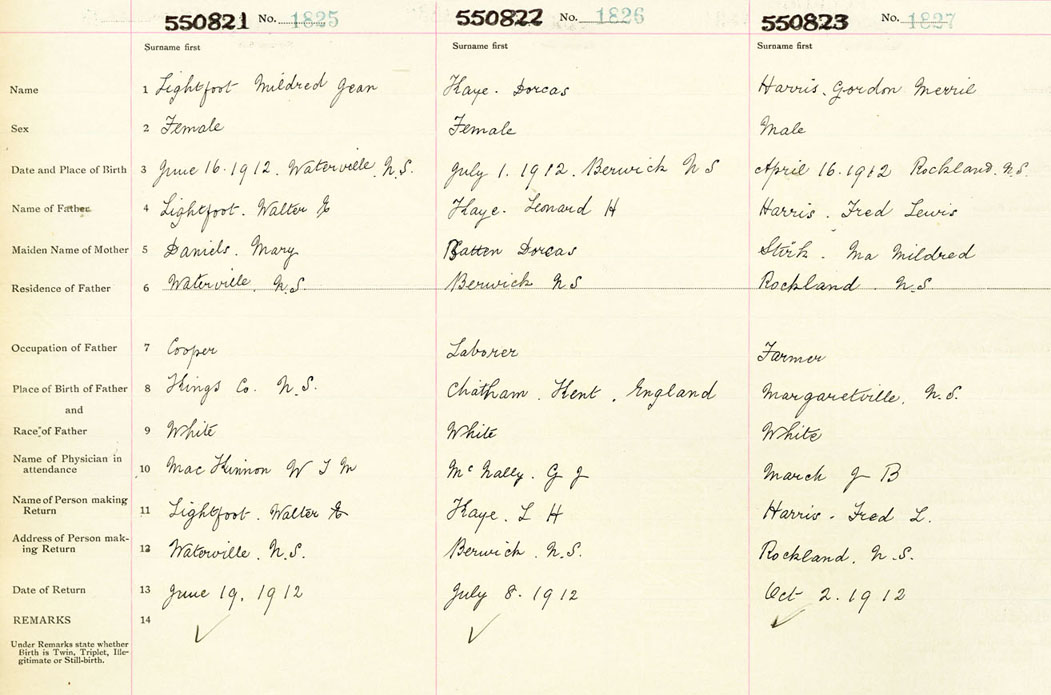 550821 No. 1825 550822 No. 1826 550823 No. 1827
Surname first Surname first Surname first
Name 1 Lightfoot Mildred Jean Kaye. Dorcas Harris. Gordon Merril
Sex 2 Female Female Male
Date and Place of Birth 3 June 16. 1912. Waterville. N.S. July 1. 1912. Berwick N S April 16. 1912 Rockland. N.S.
Name of Father 4 Lightfoot. Walter E Kaye. Leonard H Harris. Fred Lewis
Maiden Name of Mother 5 Daniels. Mary Batten Dorcas Stirk. Ma Mildred
Residence of Father 6 Waterville. N.S. Berwick N S Rockland. N.S.
Occupation of Father 7 Cooper Laborer Farmer
Place of Birth of Father 8 Kings Co. N.S. Chatham. Kent. England Margaretville. N.S.
and
Race of Father 9 White White White
Name of Physician in
attendance 10 MacKinnon W J M McNally. G J March J B
Name of Person making
Return 11 Lightfoot. Walter E Kaye. L H Harris - Fred L.
Address of Person mak-
ing Return 12 Waterville. N.S. Berwick. N.S. Rockland. N.S.
Date of Return 13 June 19, 1912 July 8. 1912 Oct 2. 1912
REMARKS 14
Under Remarks state whether
Birth is Twin, Triplet, Ille-
gitimate or Still-birth.